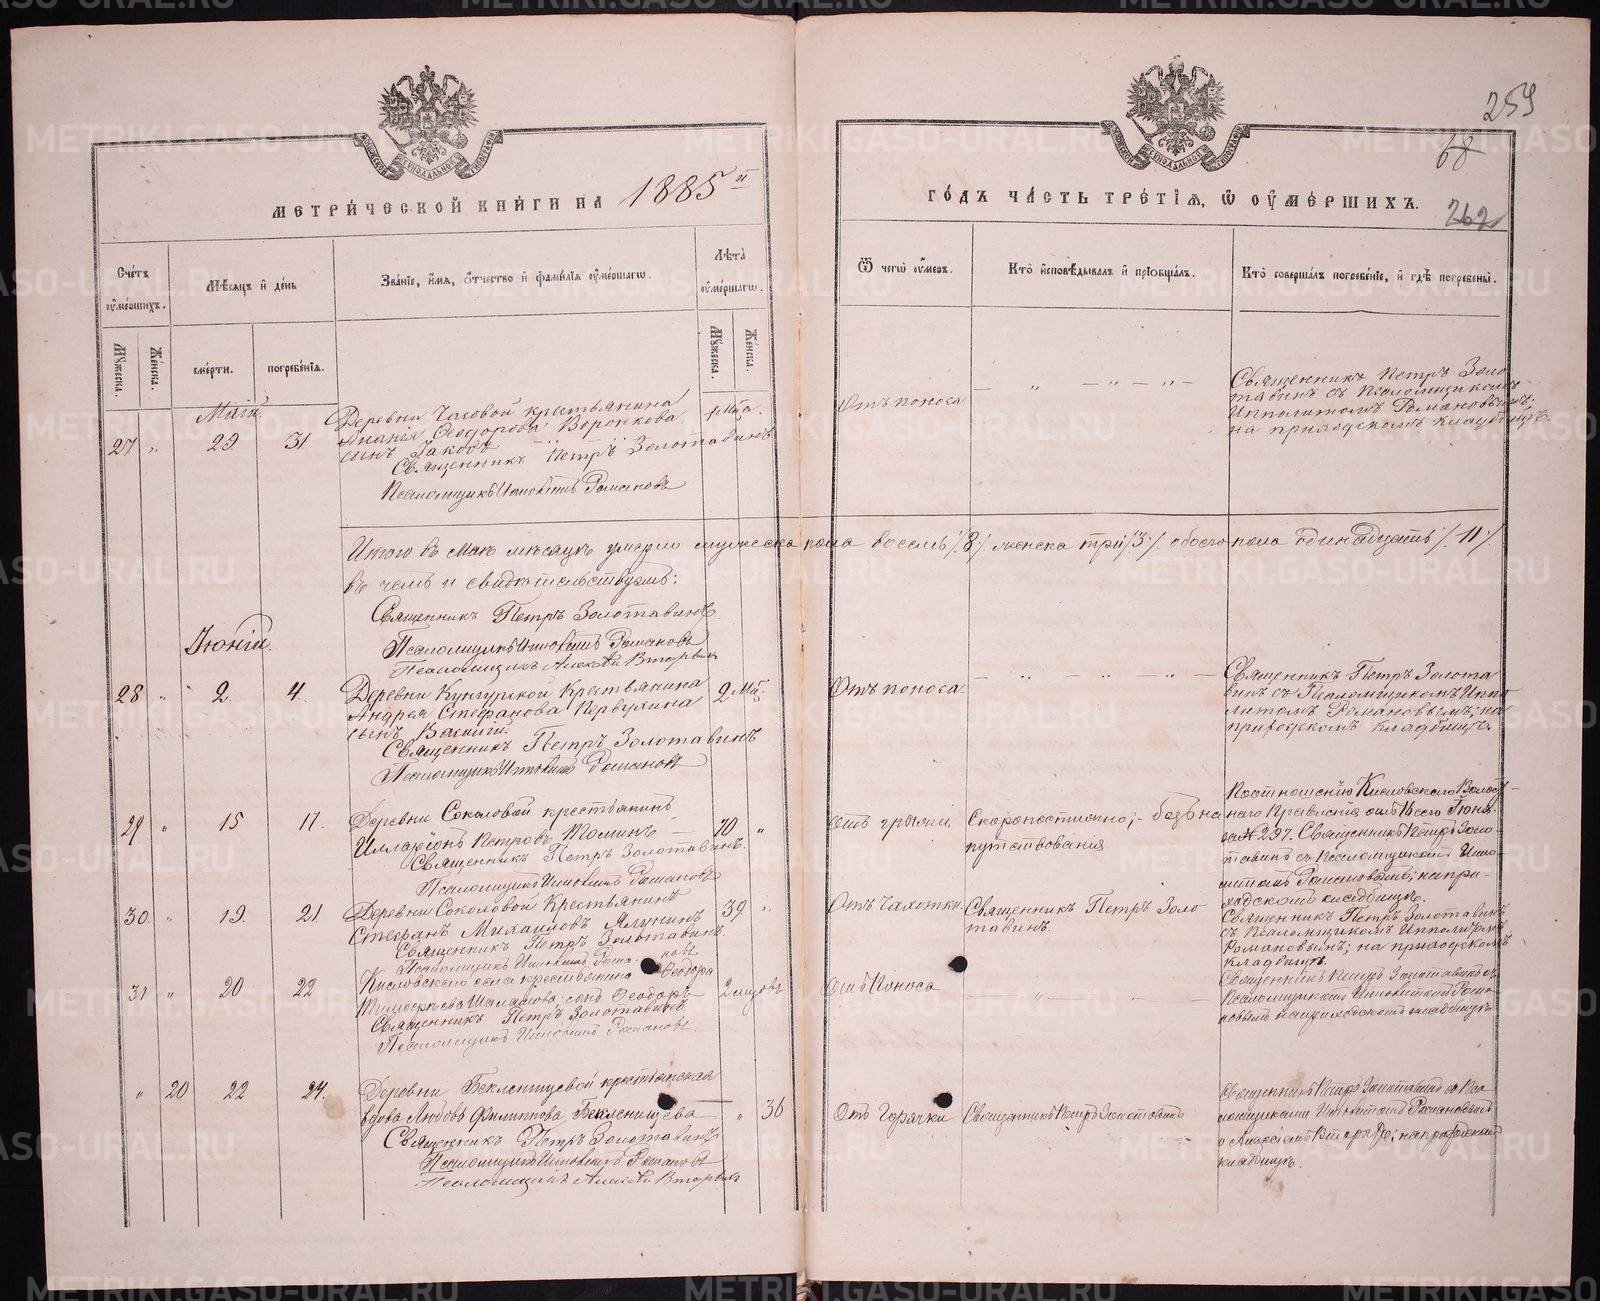 МЕТРИЧЕСКОЙ КНИГИ НА 1885й
ГОДЪ ЧАСТЬ ТРЕТІЯ, Ѡ ОУМЕРШИХЪ.
259
68
262
Счетъ оумершихъ.
Мѣсяцъ и день
Званіе, имя, отчество и фамилія оумершагѡ.
Лѣта оумершагѡ.
Ѿ чегѡ оумеръ.
Кто исповѣдывалъ и пріобщалъ.
Кто совершалъ погребеніе, и гдѣ погребены.
Мужеска.
Женска.
смерти.
погребенія.
Мужеска.
Женска.
Маій.
27 " 29. 31
Деревни Часовой крестьянина
Ананія Ѳеодорова Воронкова
сынъ Іаковъ
Священникъ Петръ Золотавинъ
Псаломщикъ Ипполитъ Романовъ
Отъ поноса
Священникъ Петръ Золо
тавинъ съ Псаломщикомъ
Ипполитомъ Романовымъ;
на приходскомъ кладбищѣ.
Итого въ Маѣ мѣсяцѣ умерло мужеска пола восемь /8/ женска три /3/. обоего пола одинадцать /11/.
въ чемъ и свидѣтельствуемъ:
Священникъ Петръ Золотавинъ.
Псаломщикъ Ипполитъ Романовъ
Псаломщикъ Алексѣй Вторыхъ
Іюній.
28 " 2. 4.
Деревни Кунгурской Крестьянина
Андрея Стефанова Первухина
сынъ Василій.
2 Мц.
Священникъ Петръ Золотавинъ
Псаломщикъ Ипполитъ Романовъ
Отъ поноса.
Священникъ Петръ Золота
винъ съ Псаломщикомъ Иппо
литомъ Романовымъ; на
приходскомъ кладбищѣ.
29 " 15 17.
Деревни Соколовой крестьянинъ
Илларіонъ Петровъ Томинъ
70 "
Священникъ Петръ Золотавинъ.
Псаломщикъ Ипполитъ Романовъ
Отъ грыжи
Скоропостижно; безъ на
путствования
По отношенію Кисловскаго Волост
наго Правленія отъ 16 сего Іюня
за № 297. Священникъ Петръ Золо
тавинъ съ Псаломщикомъ Иппо
литомъ Романовымъ; на при
ходскомъ кладбищѣ.
30 " 19. 21
Деревни Соколовой Крестьянинъ
Стефанъ Михаиловъ Ялунинъ
39. "
Священникъ Петръ Золотавинъ.
Псаломщикъ Ипполитъ Рома новъ
Отъ Чахотки.
Священникъ Петръ Золо
тавинъ.
Священникъ Петръ Золотавинъ
съ Псаломщикомъ Ипполитомъ
Романовымъ; на приходскомъ
кладбищѣ.
31 " 20 22
Кисловскаго села крестьянина Ѳеодора
Тимофѣева сынъ Ѳеодоръ
2 мцовъ
Священникъ Петръ Золотавинъ
Псаломщикъ Ипполитъ Романовъ.
Отъ Поноса
Священникъ Петръ Золотавинъ съ
Псаломщикомъ Ипполитомъ Рома
новымъ на приходскомъ кладбищѣ
" 20 22 24.
Деревни Бекленищевой крестьянская
вдова Любовь Филиппова Бекленищева
" 36
Священникъ Петръ Золотавинъ
Псаломщикъ Ипполитъ Романовъ
Псаломщикъ Алексѣй Вторыхъ
Отъ Горячки
Священникъ Петръ Золотавинъ
Священникъ Петръ Золотавинъ съ Пса
ломщиками Ипполитомъ Романовымъ
и Алексіемъ Вторыхъ; на приходскомъ
кладбищѣ.
METRIKI.GASO-URAL.RU